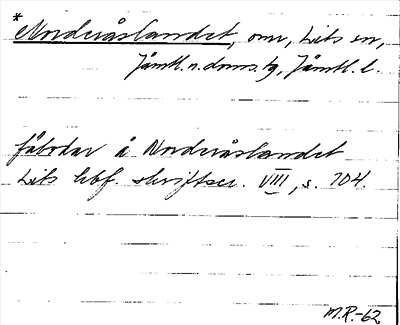 *Nordvåslandet, omr, Lits sn,
Jämtl. n. doms. tg, Jämtl. l.
fäbodar å Nordvåslandet
Lits hbf. skriftser. VIII, s. 104.
M.R.-62